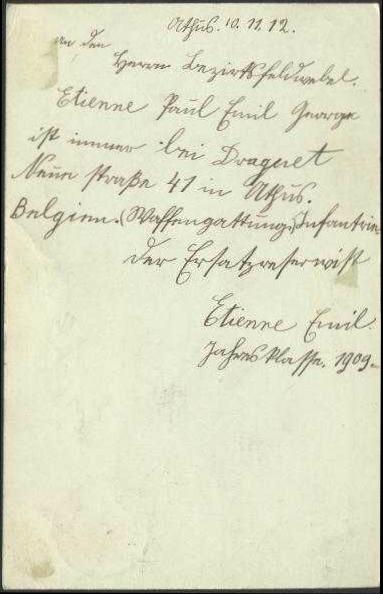 Athus. 10. 11. 12.
an den
Herrn Bezirksfeldwebel.
Etienne Paul Emil George
ist immer bei Draguet
Neue straße 41 in Athus.
Belgien. (Waffengattung.) Infantrie
der Ersatzreservist
Etienne Emil.
Jahresklasse. 1909.